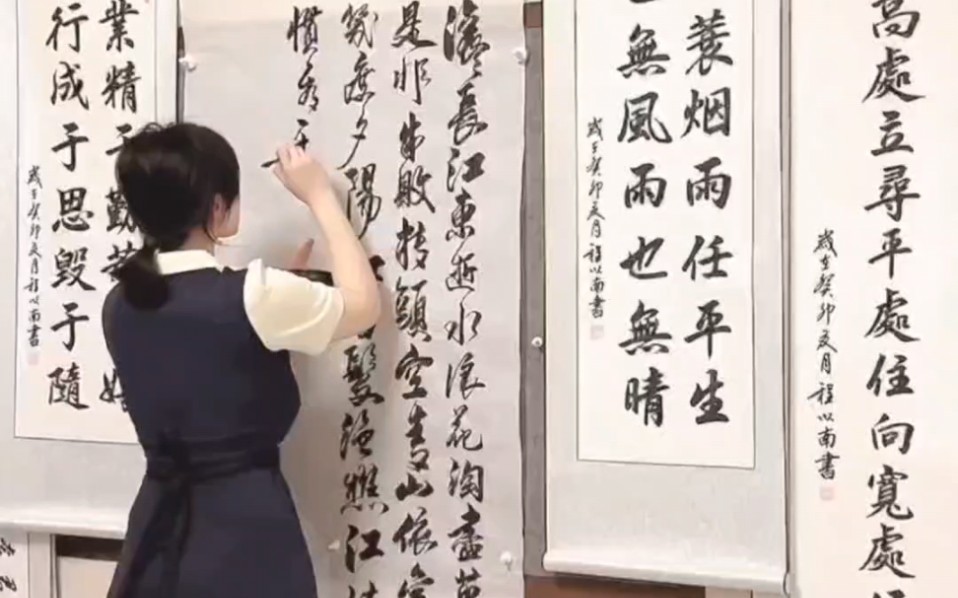 高處立尋平處住向寬處
歲在癸卯月程以南書
蓑烟雨任平生
也無風雨也無晴
歲在癸卯月程以南書
滾長江東逝水浪花淘盡英
是非成敗转頭空青山依
幾度夕陽髮漁樵江
慣看
業精于勤荒嬉
行成于思毀于隨
歲在癸卯月程以南書